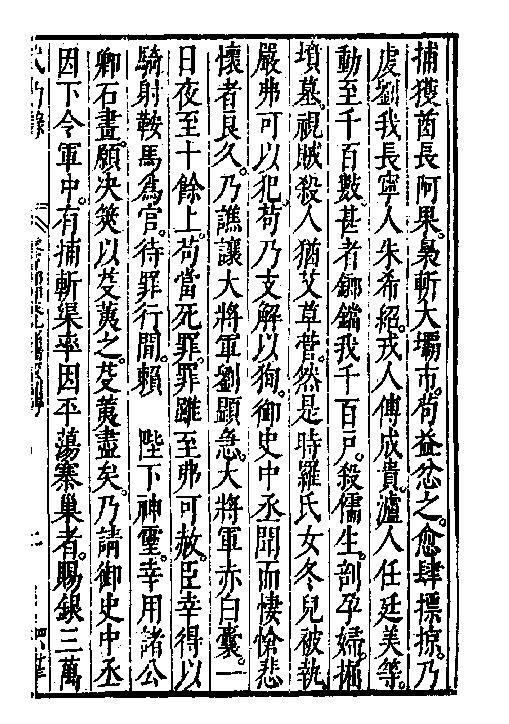 捕獲酋長阿果。梟斬大壩市。苟益忿之。愈肆摽掠。乃
虔劉我長寧人朱希紹。戎人傅成貴。瀘人任廷美等。
動至千百數。甚者鎯鐺我千百戶。殺儒生。剖孕婦。掘
墳墓。視賊殺人猶艾草菅。然是時羅氏女冬兒被執。
嚴弗可以犯。苟乃支解以狥。御史中丞聞而悽愴悲
懷者良久。乃譙讓大將軍劉顯急。大將軍赤白囊。一
日夜至十餘上。苟當死罪。罪雖至弗可赦。臣幸得以
騎射鞍馬爲官。待罪行間。賴 陛下神靈。幸用諸公
卿石畫。願決筴以芟荑之。芟荑盡矣。乃請御史中丞
因下令軍中。有捕斬渠率因平蕩寨巢者。賜銀三萬